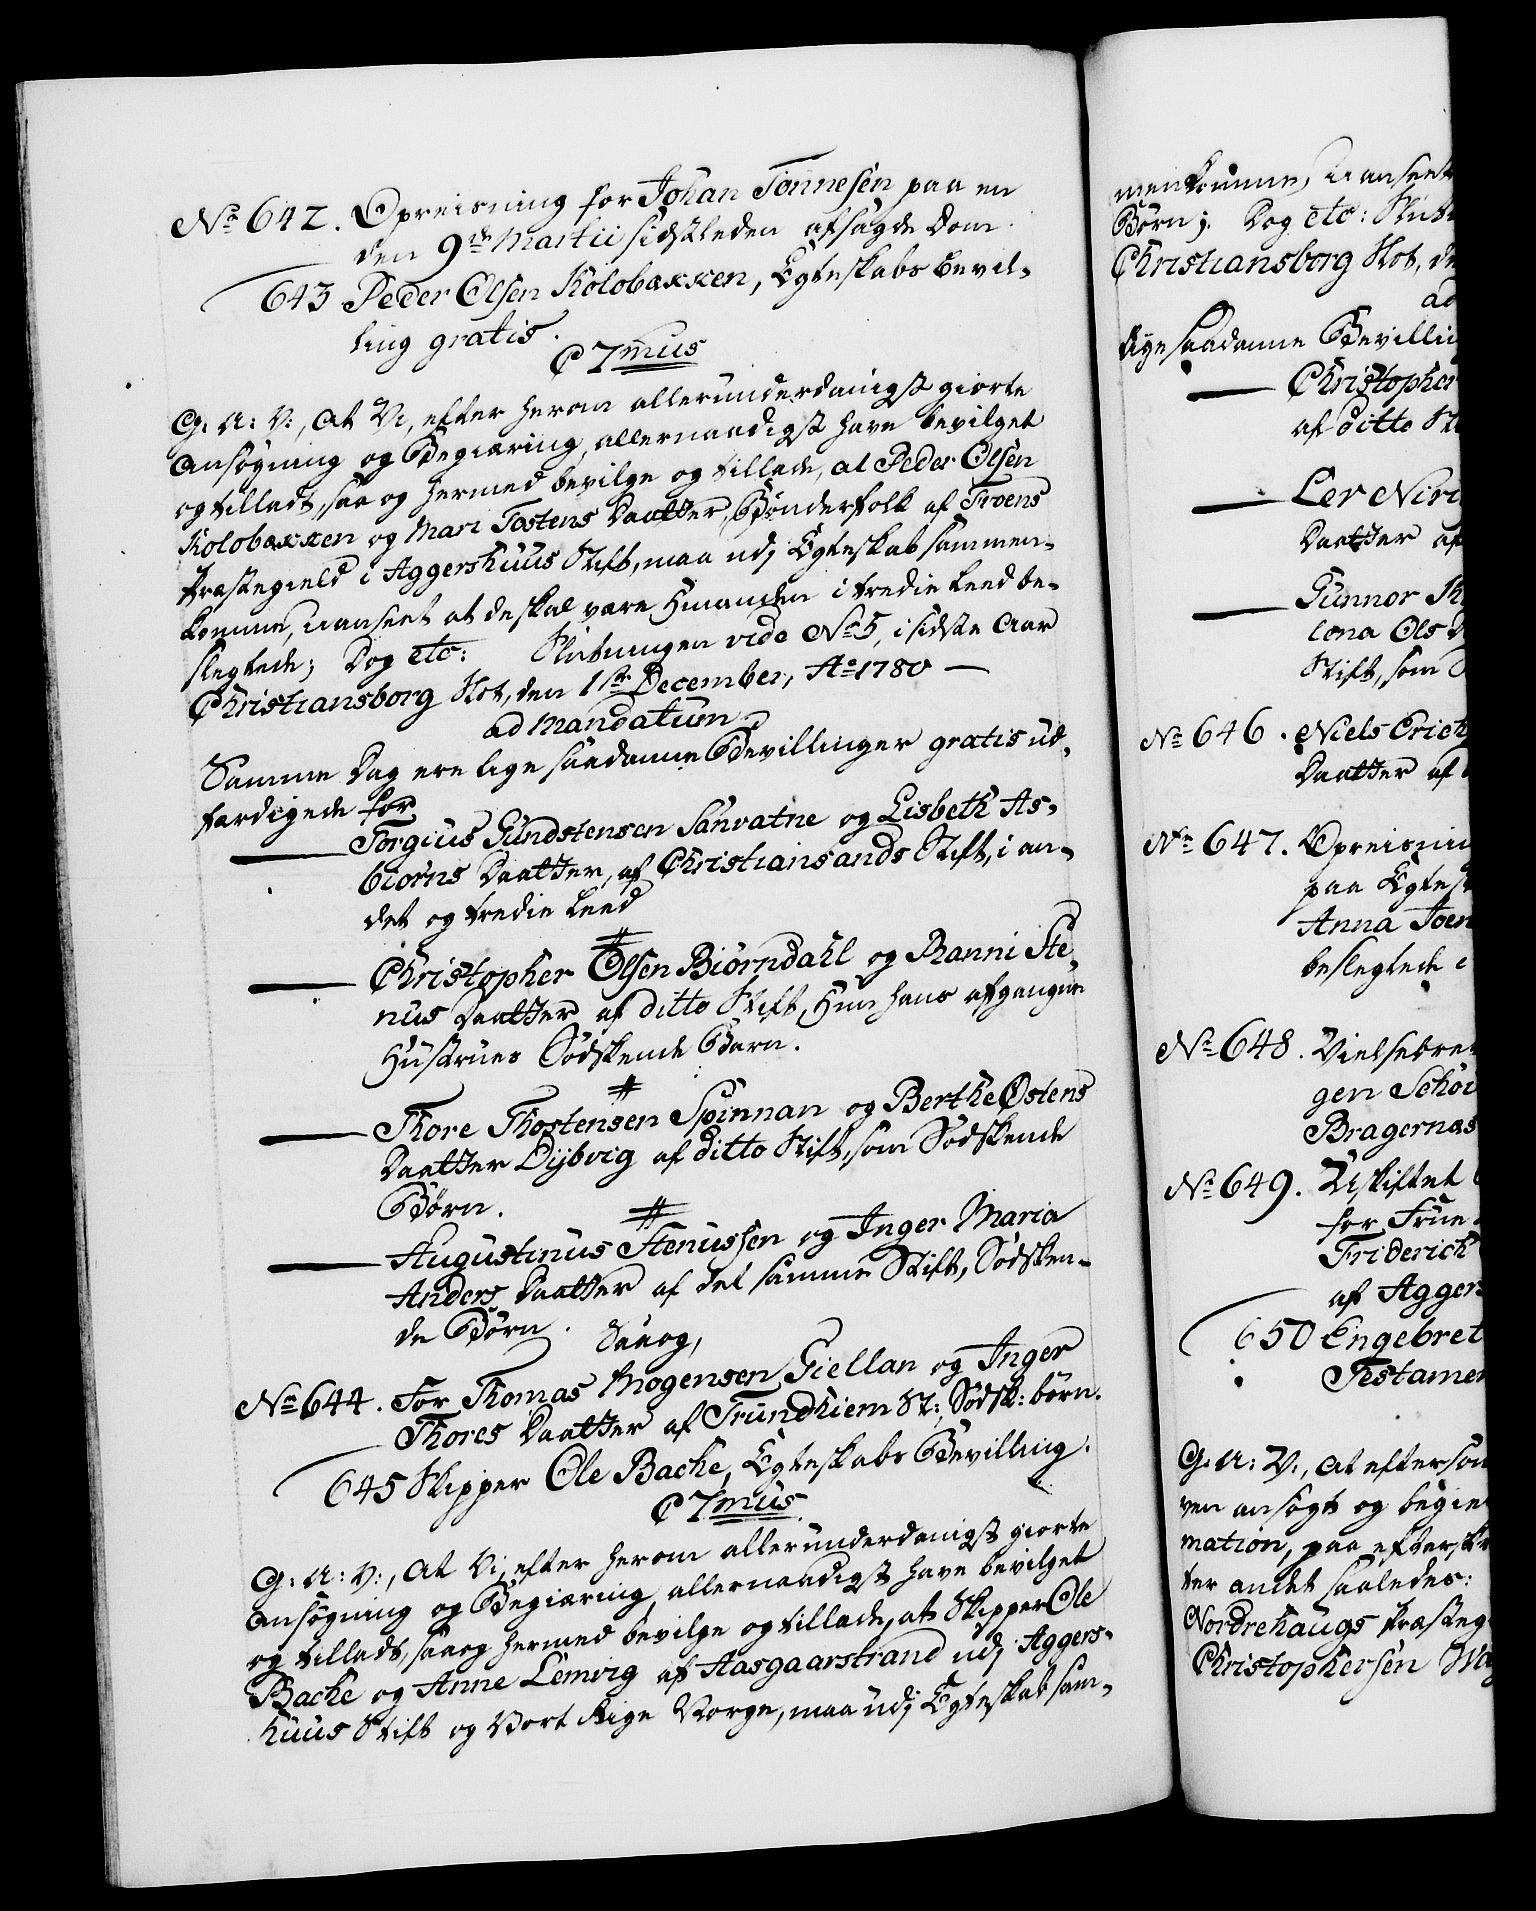 No 642. Opreisning for Johan Tönnesen paa en
den 9de Martii sidstleden afsagde Dom.
643 Peder Olsen Kolobakken, Egteskabs Bevil-
ling gratis.
C 7mus
G: A: V:, at Vi, efter herom allerunderdanigst giorte
Ansøgning og Begiæring, allernaadigst have bevilget
og tilladt, saa og hermed bevilge og tillade, at Peder Olsen
Kolobakken og Mari Tostens Daatter, Bönderfolk af Troens
Præstegield i Aggershuus Stift, maa udj Egteskab sammen-
komme, Uanseet at de skal være hinanden i tredie Leed be-
slegtede; Dog etc: Slutningen vide No 5, i sidste Aar
Christiansborg Slot, den 1ste December, Ao 1780 —
ad Mandatum
Samme Dag ere lige saadanne Bevillinger gratis ud-
færdigede for
— Torgius Gundstensen Sanvatne og Lisbeth As-
biorns Daatter, af Christiansands Stift, i an-
det og tredie Leed
— Christopher Olsen Biörndahl og Ranni Ste-
nus Daatter af ditto Stift, Hun hans afgangne
Hustrues Södskende Barn.
— Thore Thostensen Spinnan og Berthe Østens
Daatter Dybvig af ditto Stift, som Södskende
Börn.
— Augustinus Stenussen og Inger Maria
Anders Daatter af det samme Stift, Södsken-
de Börn. Saaog,
No 644. For Thomas Mogensen Giellan og Inger
Thores Daatter af Trundhiem St:, Södsk: börn.
645 Skipper Ole Bache, Egteskabs Bevilling.
C 7mus
G: A: V:, at Vi, efter herom allerunderdanigst giorte
Ansøgning og Begiæring, allernaadigst have bevilget
og tilladt, saaog hermed bevilge og tillade, at Skipper Ole
Bache og Anne Lemvig af Aasgaarstrand udj Aggers-
huus Stift og Vort Rige Norge, maa udj Egteskab sam-
menkomme, Uanseet
Börn; Dog etc:
Christiansborg Slot, de
ad
lige saadanne Bevillin
— Christopher
af ditto St
—
Daatter af
— Gunnor
lona Ols D
Stift, som
No 646. Niels Erich
Daatter af
No 647. Opreisnin
paa Egtes
Anna Joen
beslegtede i
No 648. Vielsebre
gen Schöi
Bragernæs
No 649. Uskiftet
for Frue
Friderich
af Agger
650 Engebret
Testamen
G: A: V:, at eftersom
ven ansøgt og begie
mation, paa efterskr
ter andet saaledes:
Nordrehaugs Præsteg
Christophersen